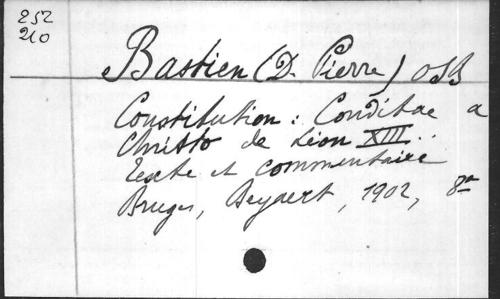 252
210
Bastien (D. Pierre) OSB
Constitution : Conditae a
Christo de Léon XIII..
Texte et commentaire
Bruges, Beyaert, 1902, 8°